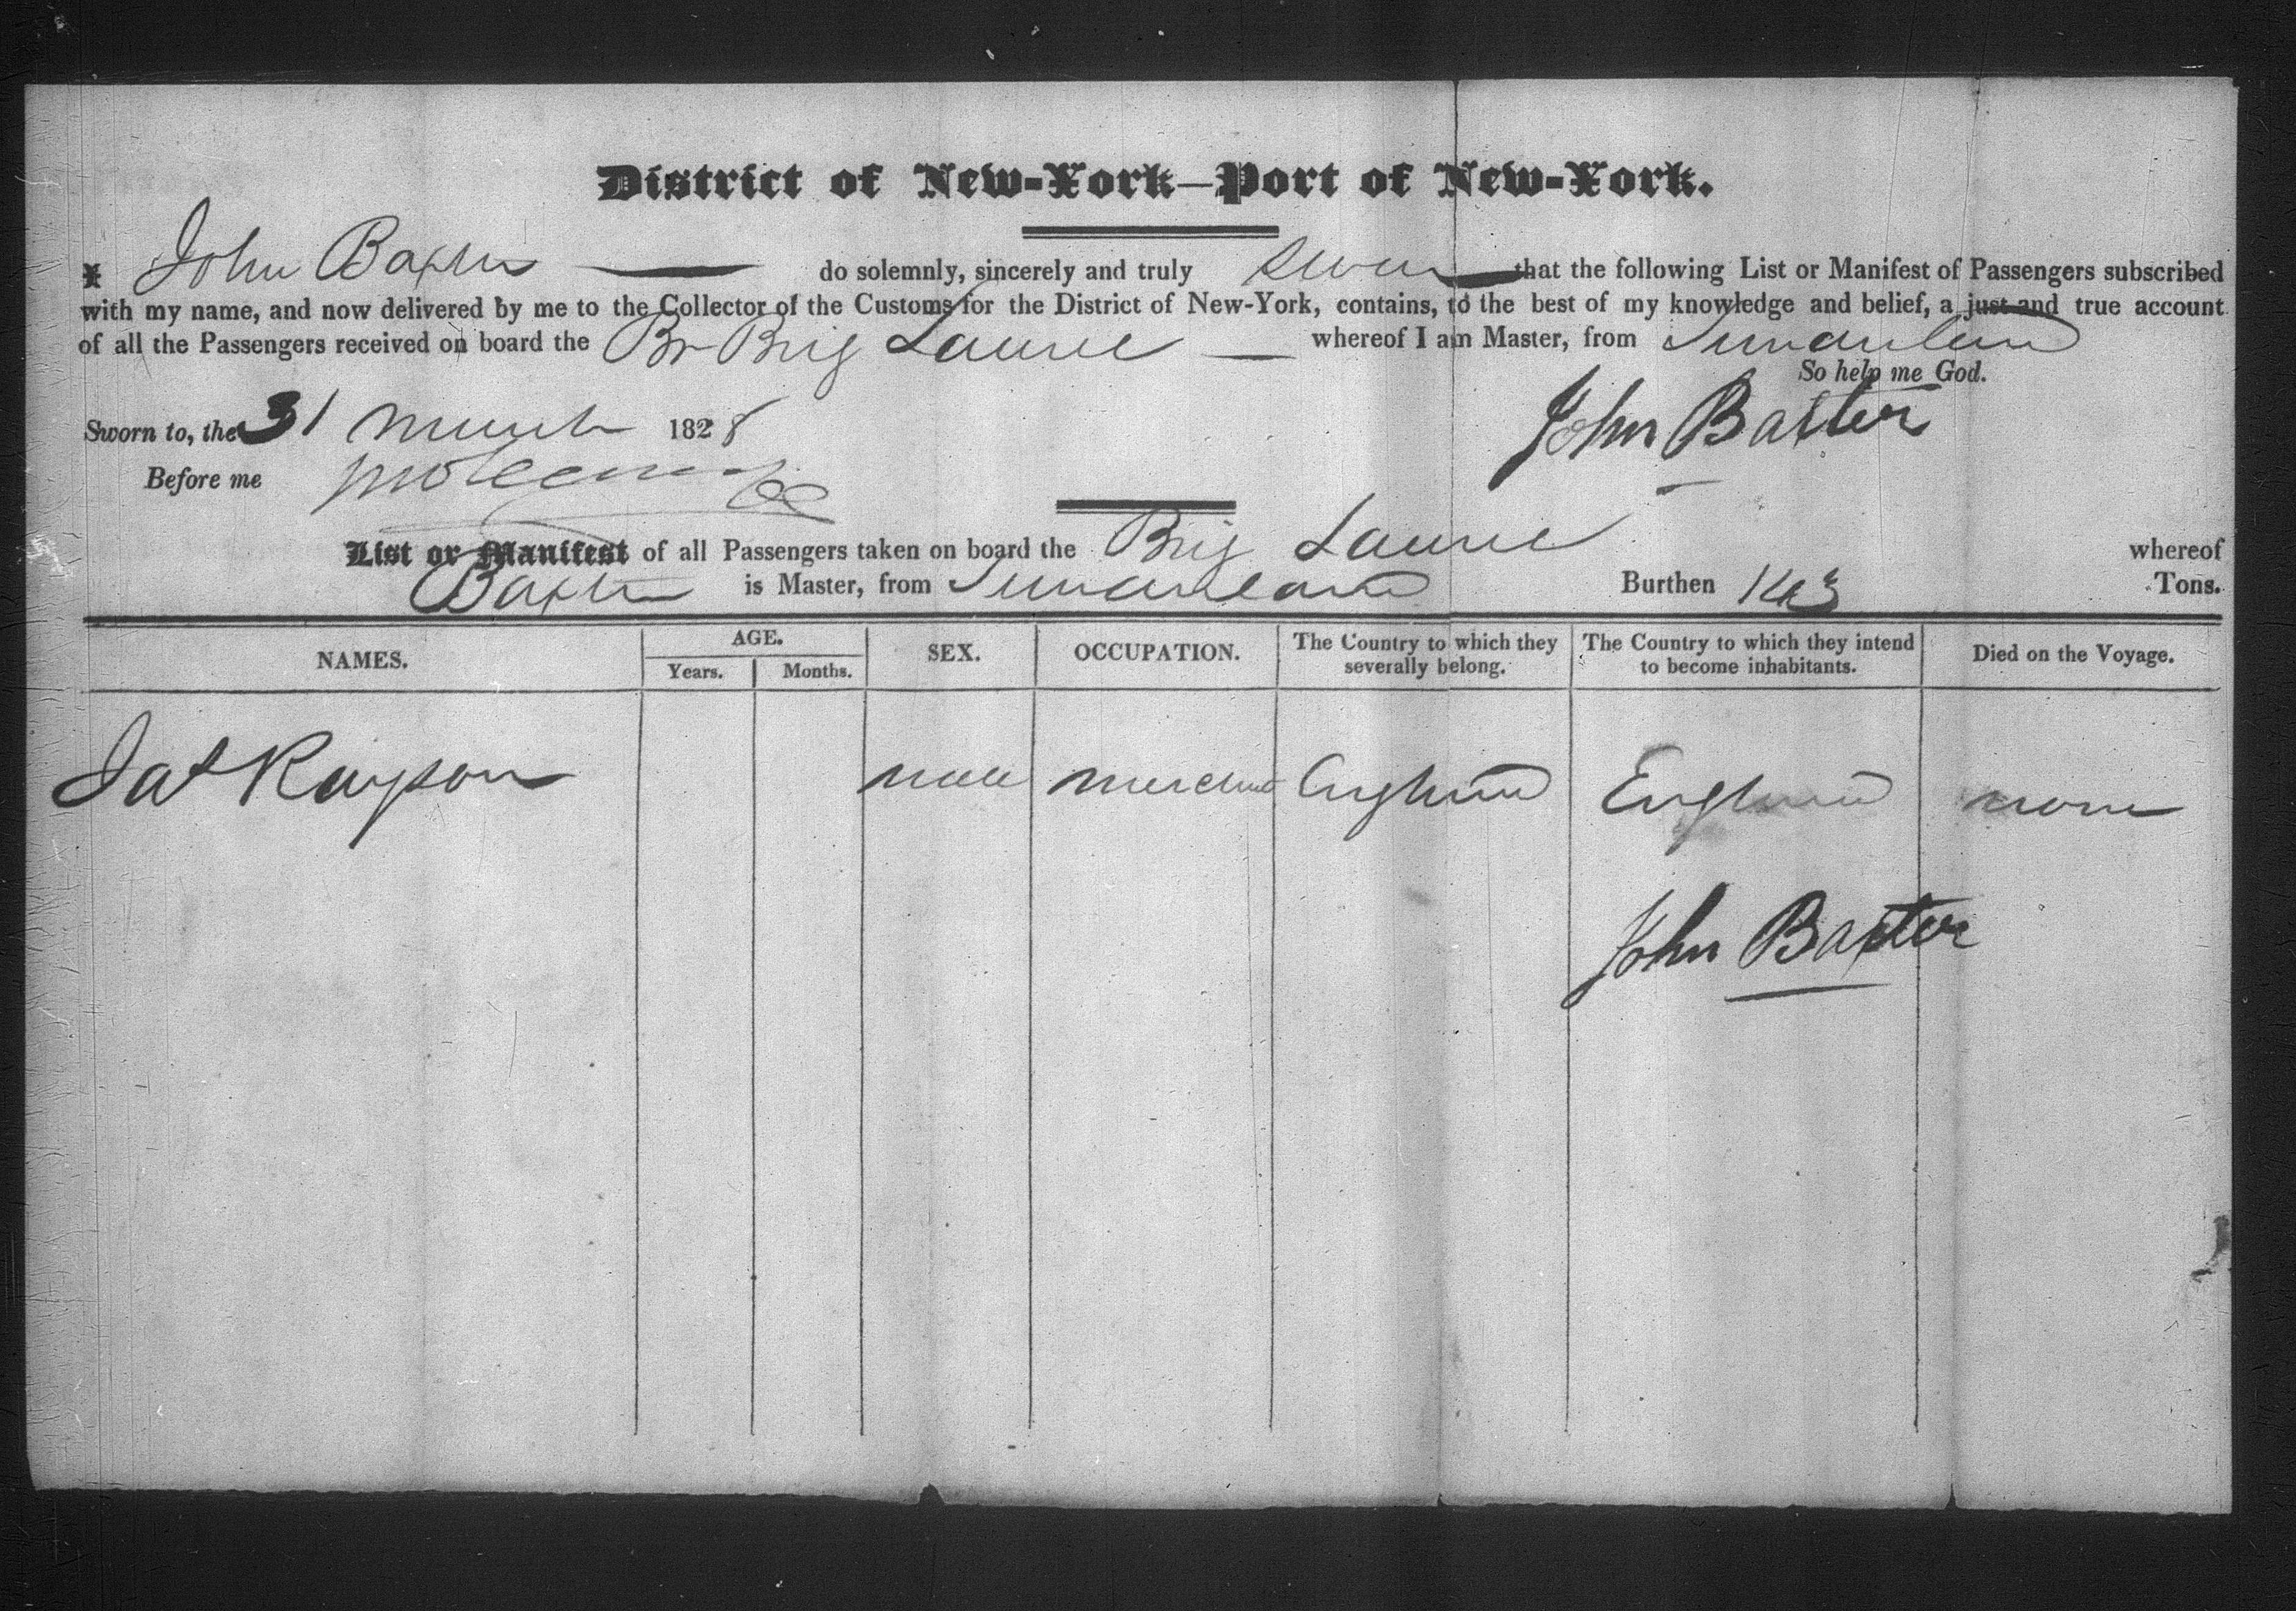 District of New-York—Port of New-York.
I John Baxter do solemnly, sincerely and truly swear that the following List or Manifest of Passengers subscribed
with my name, and now delivered by me to the Collector of the Customs for the District of New-York, contains, to the best of my knowledge and belief, a just and true account
of all the Passengers received on board the Br Brig Laurel whereof I am Master, from Sunderland
So help me God.
Sworn to, the 31 March 1828 John Baxter
Before me
List or Manifest of all Passengers taken on board the Brig Laurel whereof
Baxter is Master, from Sunderland Burthen 143 Tons.
NAMES. AGE. Years. Months. SEX. OCCUPATION. The Country to which they severally belong. The Country to which they intend to become inhabitants. Died on the Voyage.
Jas Rayson male merchant England England none
John Baxter